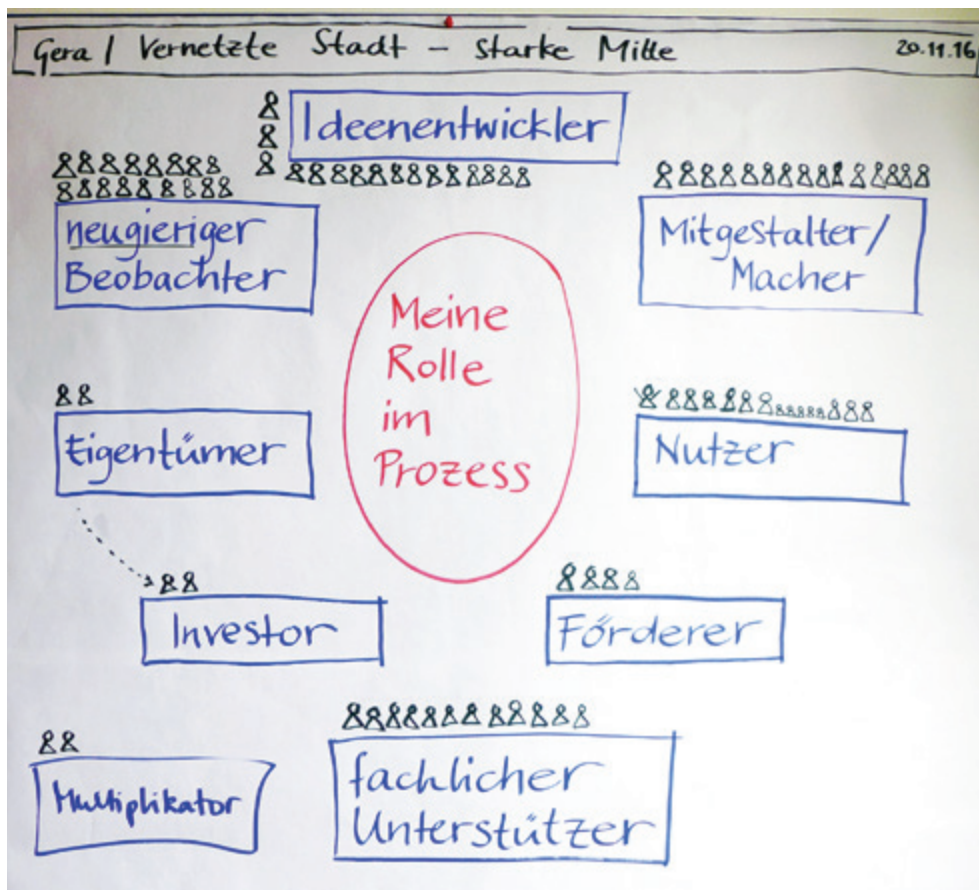 Gera / Vernetzte Stadt - starke Mitte
20.11.16
Ideenentwickler
neugieriger
Beobachter
Mitgestalter/
Macher
Meine
Rolle
im
Prozess
Eigentümer
Nutzer
Investor
Förderer
Multiplikator
fachlicher
Unterstützer